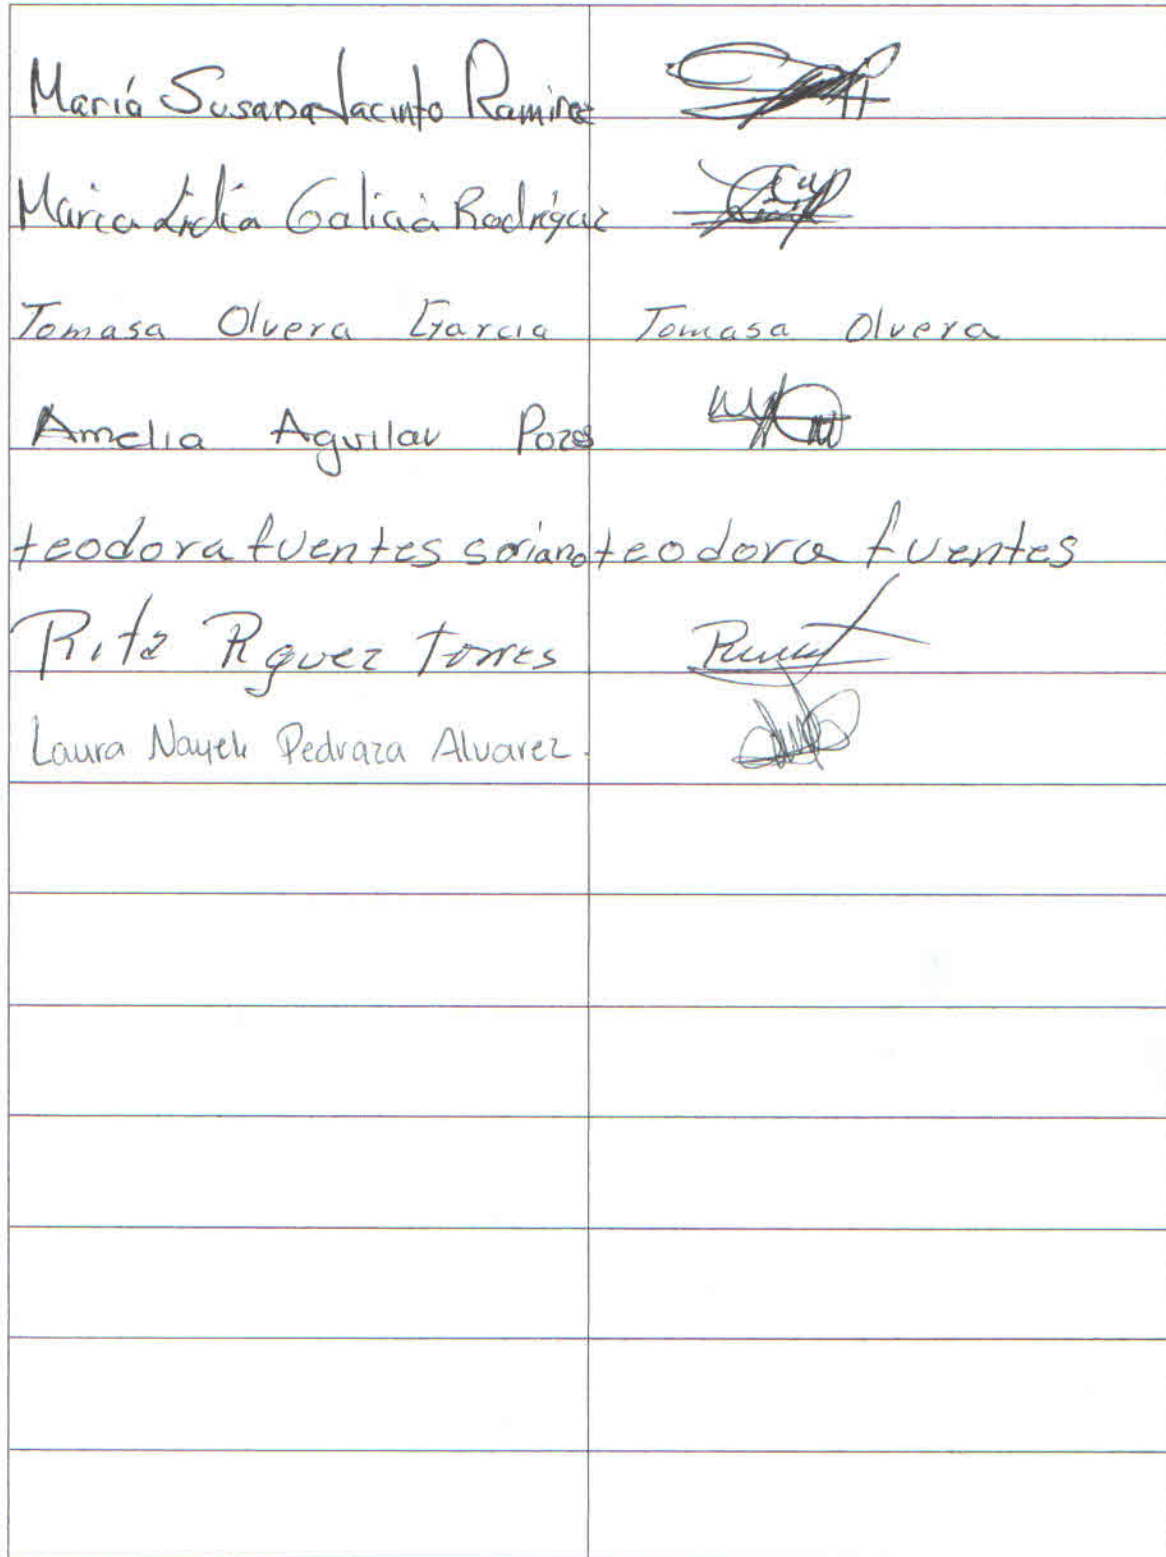 María Susana Jacinto Ramirez
Maria Lidia Galicia Rodriguez
Tomasa Olvera Garcia Tomasa Olvera
Amelia Aguilar Pozos
teodora fuentes soriano teodora fuentes
Rita Rguez Torres
Laura Nayeli Pedraza Alvarez.